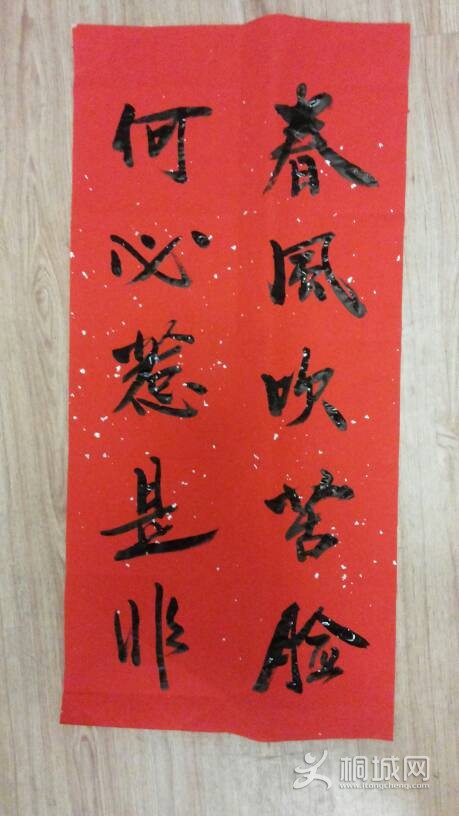 春风吹苦脸
何必惹是非
桐城网
www.itongcheng.com